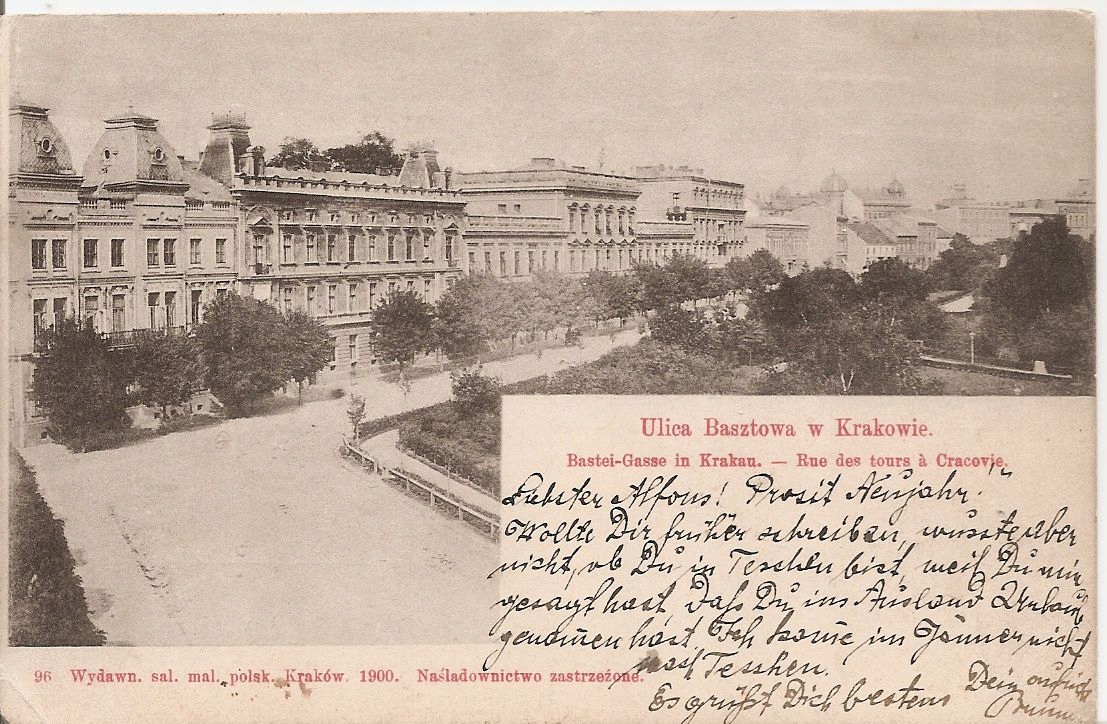 Ulica Basztowa w Krakowie.
Bastei-Gasse in Krakau. — Rue des tours à Cracovie.
Liebster Alfons! Prosit Neujahr!
Wollte Dir früher schreiben, wusste aber
nicht, ob Du in Teschen bist, weil Du mir
gesagt hast, daß Du ins Ausland Urlaub
genommen hast. Ich komme im Jänner nicht
nach Teschen.
Es grüßt Dich bestens Dein
96 Wydawn. sal. mal. polsk. Kraków. 1900. Naśladownictwo zastrzeżone.